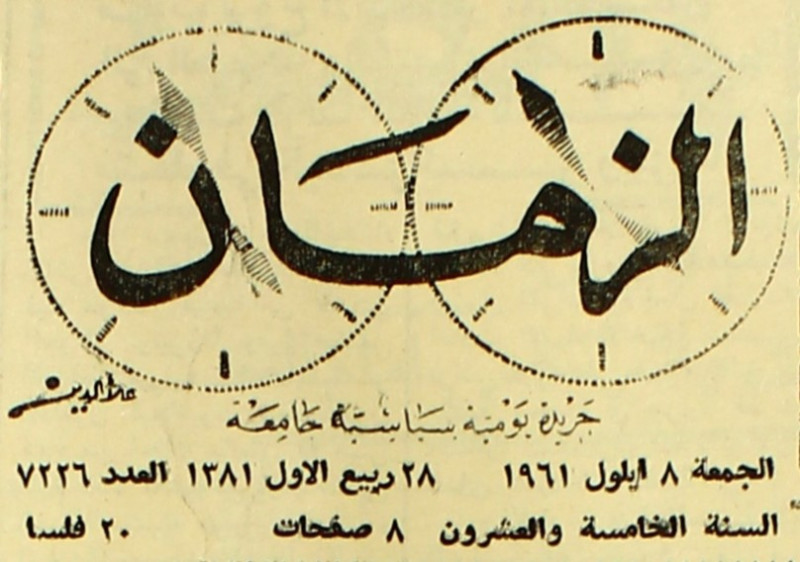 الزمان
علاء الدين
جريدة يومية سياسية جامعة
الجمعة ٨ ايلول ١٩٦١ ٢٨ ربيع الاول ١٣٨١ العدد ٧٢٢٦
السنة الخامسة والعشرون ٨ صفحات ٢٠ فلسا